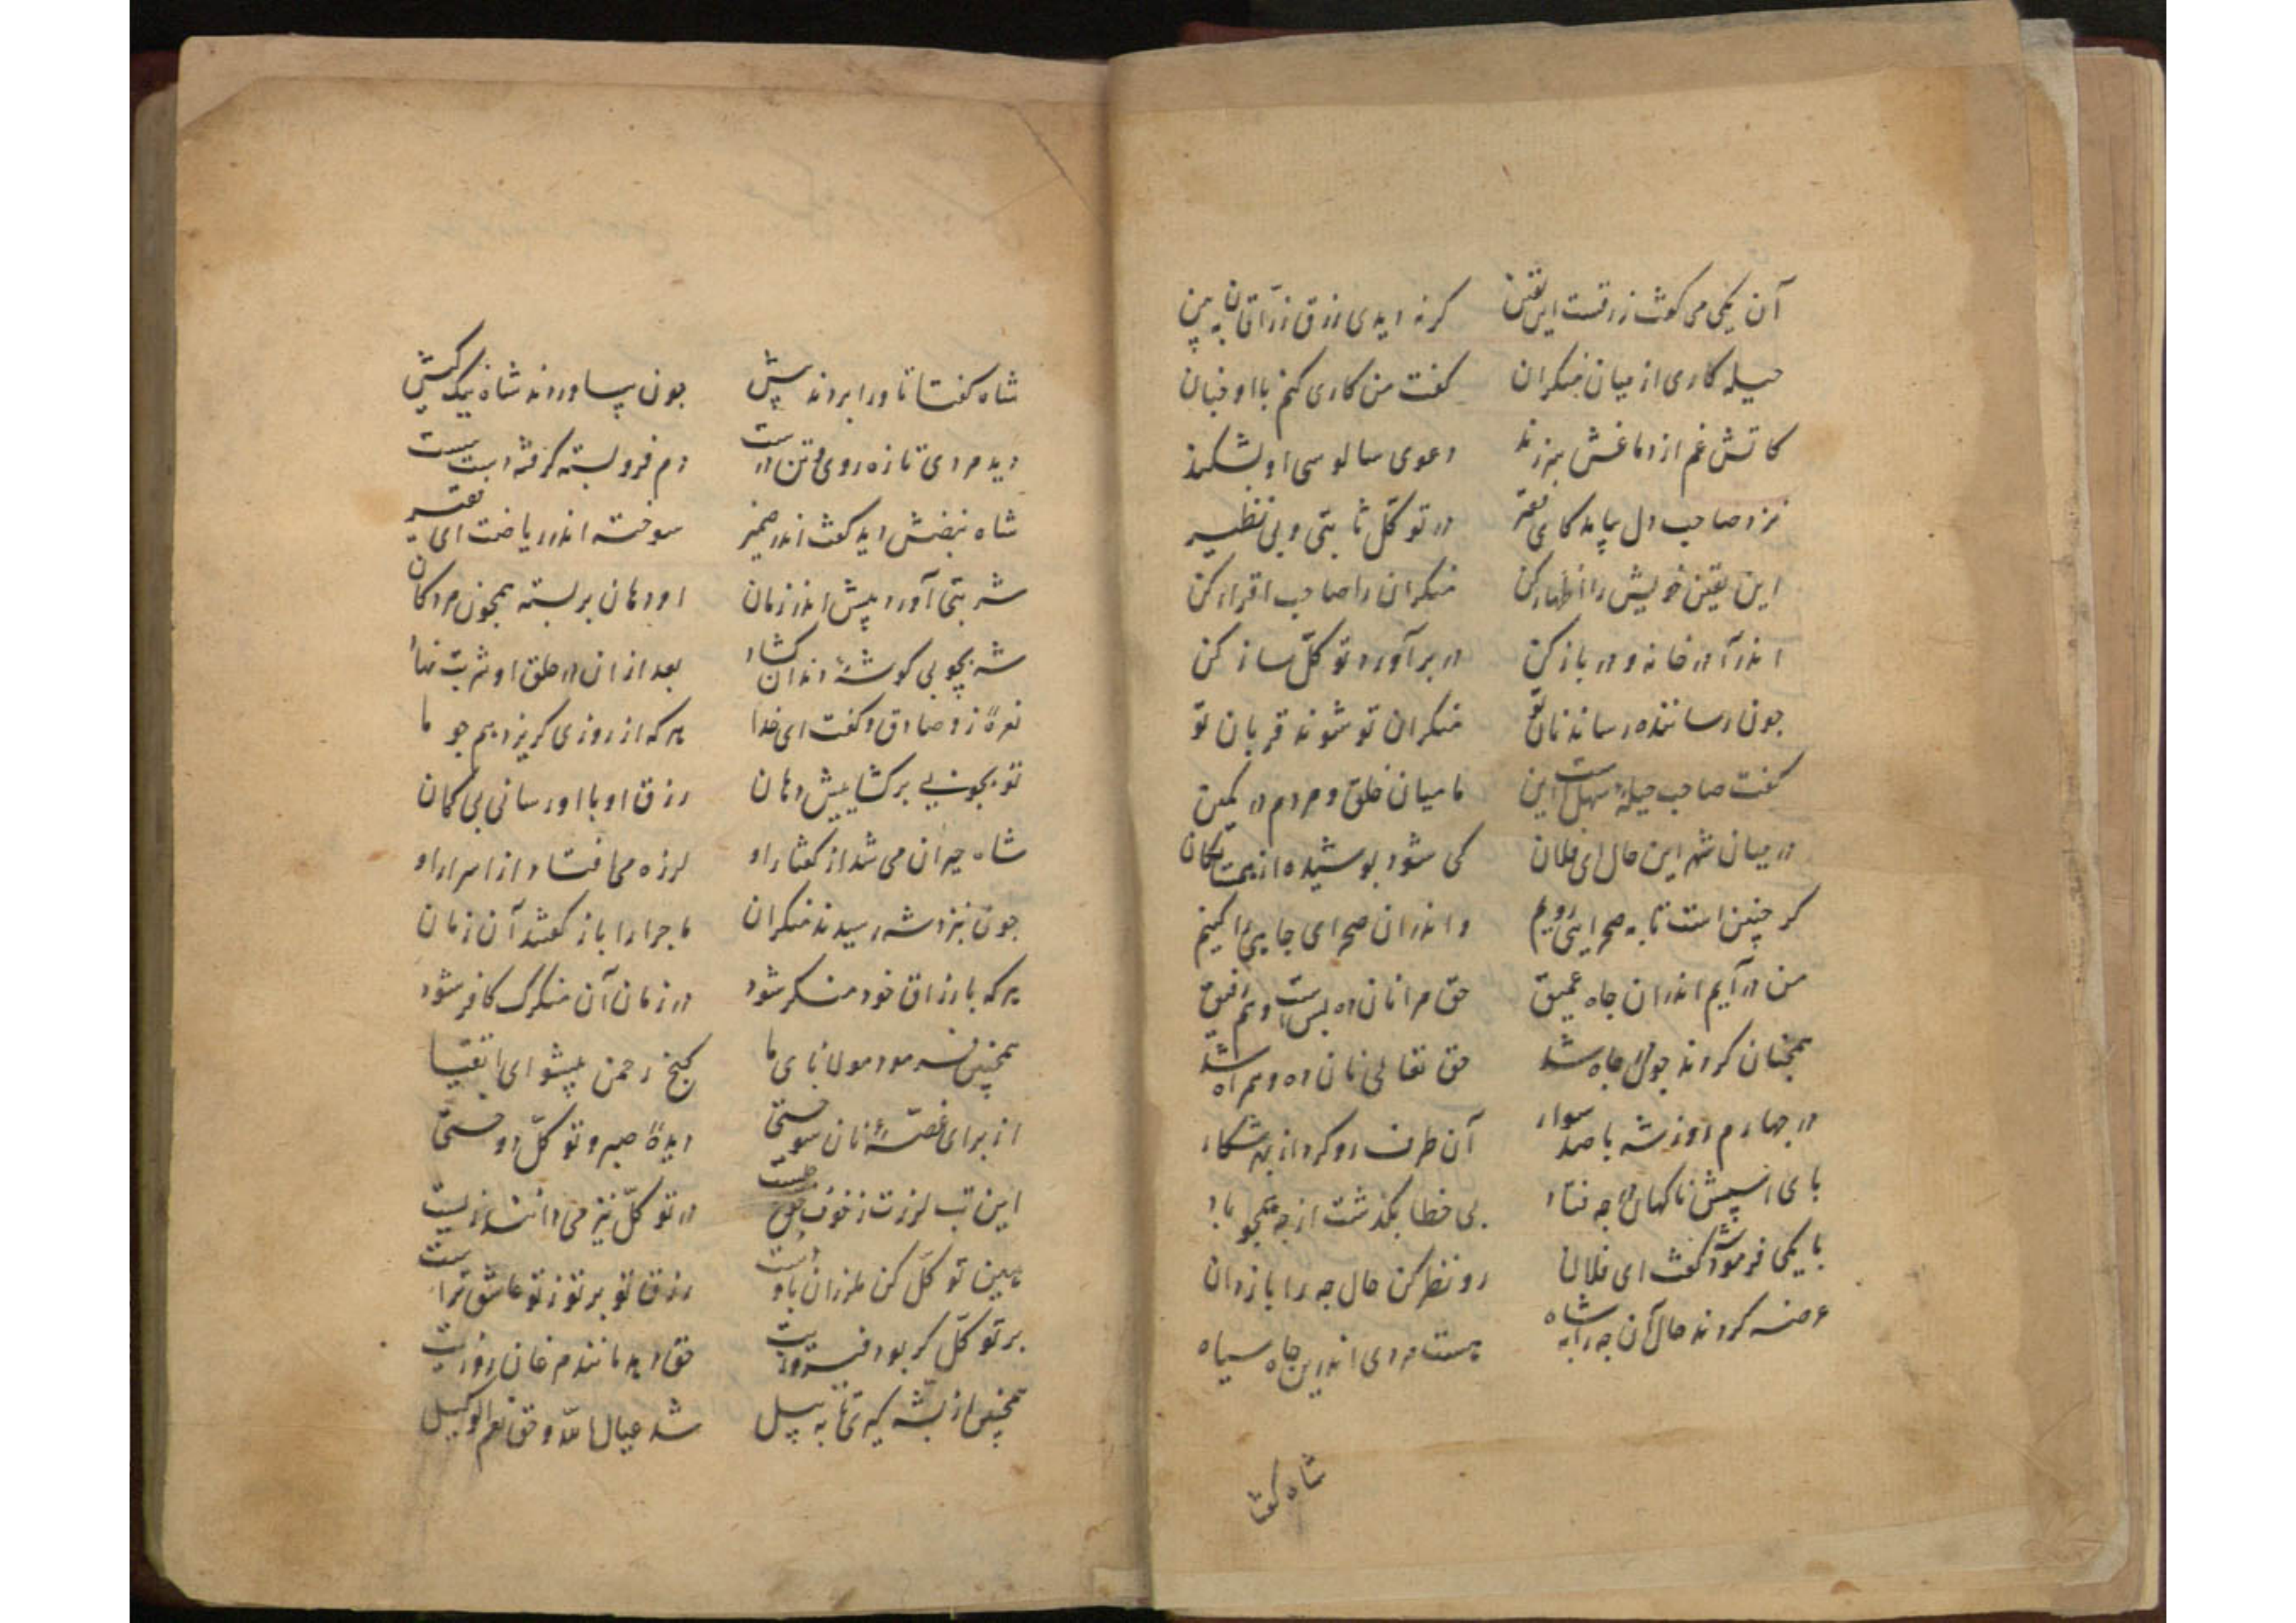 آن یکی می گفت زرقست این یقین گر نه ایدی رزق رزاقان به بین
حیله کاری از میان منکران گفت من کاری کنم با او چنان
کاتش غم از دماغش برزند دعوی سالوسی او بشکند
نزد صاحب دل بیامد کای فقیر در توکّل ثابتی و بی نظیر
این یقین خویش را اظهار کن منکران را صاحب اقرار کن
اندر آ در خانه و در باز کن در برآور در توکّل ساز کن
جون رساننده رساند نان تو منکران تو شوند قربان تو
گفت صاحب حیله سهلست این ما میان خلق و مردم در کمین
در میان شهر این حال ای فلان کی شود بوشیده از همسایگان
گر چنین است تا به صحرایی رویم و اندران صحرای جایی را کنیم
من در آیم اندران جاه عمیق حق مرا نان ده بست و هم رفیق
همچنان کردند جون در جاه شد حق تعالی نان ده و همراه شد
در جهارم روز شه با صد سوار آن طرف رو کرد از بهر شکار
بای اسپش ناکهان در جه فتاد بی خطا بکذشت از جه همجو باد
با یکی فرمود شه گفت ای فلان رو نظر کن حال جه را بازدان
عرضه کردند حال آن جه را به شاه هست مردی اندرین جاه سیاه
شاه گفتا
شاه گفتا تا ورا بردند پیش جون بیاوردند شاه نیک کیش
دید مردی تازه روی و تن درست دم فرو بسته گرفته است سست
شاه نبضش دید گفت اندر ضمیر سوخته اندر ریاضت ای فقیر
شربتی آورد پیش اندر زمان او دهان بر بسته همجون مردکان
شه بچوبی کوشهٔ دندان کشاد بعد از ان در حلق او شربت نهاد
نعرهٔ زد صادق و گفت ای خدا هر که از روزی کریزد همجو ما
تو بجوبی بر کشاییش دهان رزق او با او رسانی بی کمان
شاه حیران می شد از گفتار او لرزه می افتاد از اسرار او
جون بنزد شه رسیدند منکران ماجرا را باز گفتند آن زمان
هر که با رزاق خود منکر شود در زمان آن منکرک کافر شود
همچنین فرمود مولانای ما گنج رحمن پیشوای اتقیا
از برای غصّهٔ نان سوختی دیدهٔ صبر و توکّل دوختی
این تب لرزت ز خوف جوع چیست در توکّل نیز می دانند زیست
هین توکّل کن ملرزان با و دست رزق تو بر تو ز تو عاشق ترست
بر توکّل کر بود فیروزیت حق دهد مانند مرغان روزیت
همچنین از پشه کیری تا به پیل شد عیال الله و حق نعم الوکیل